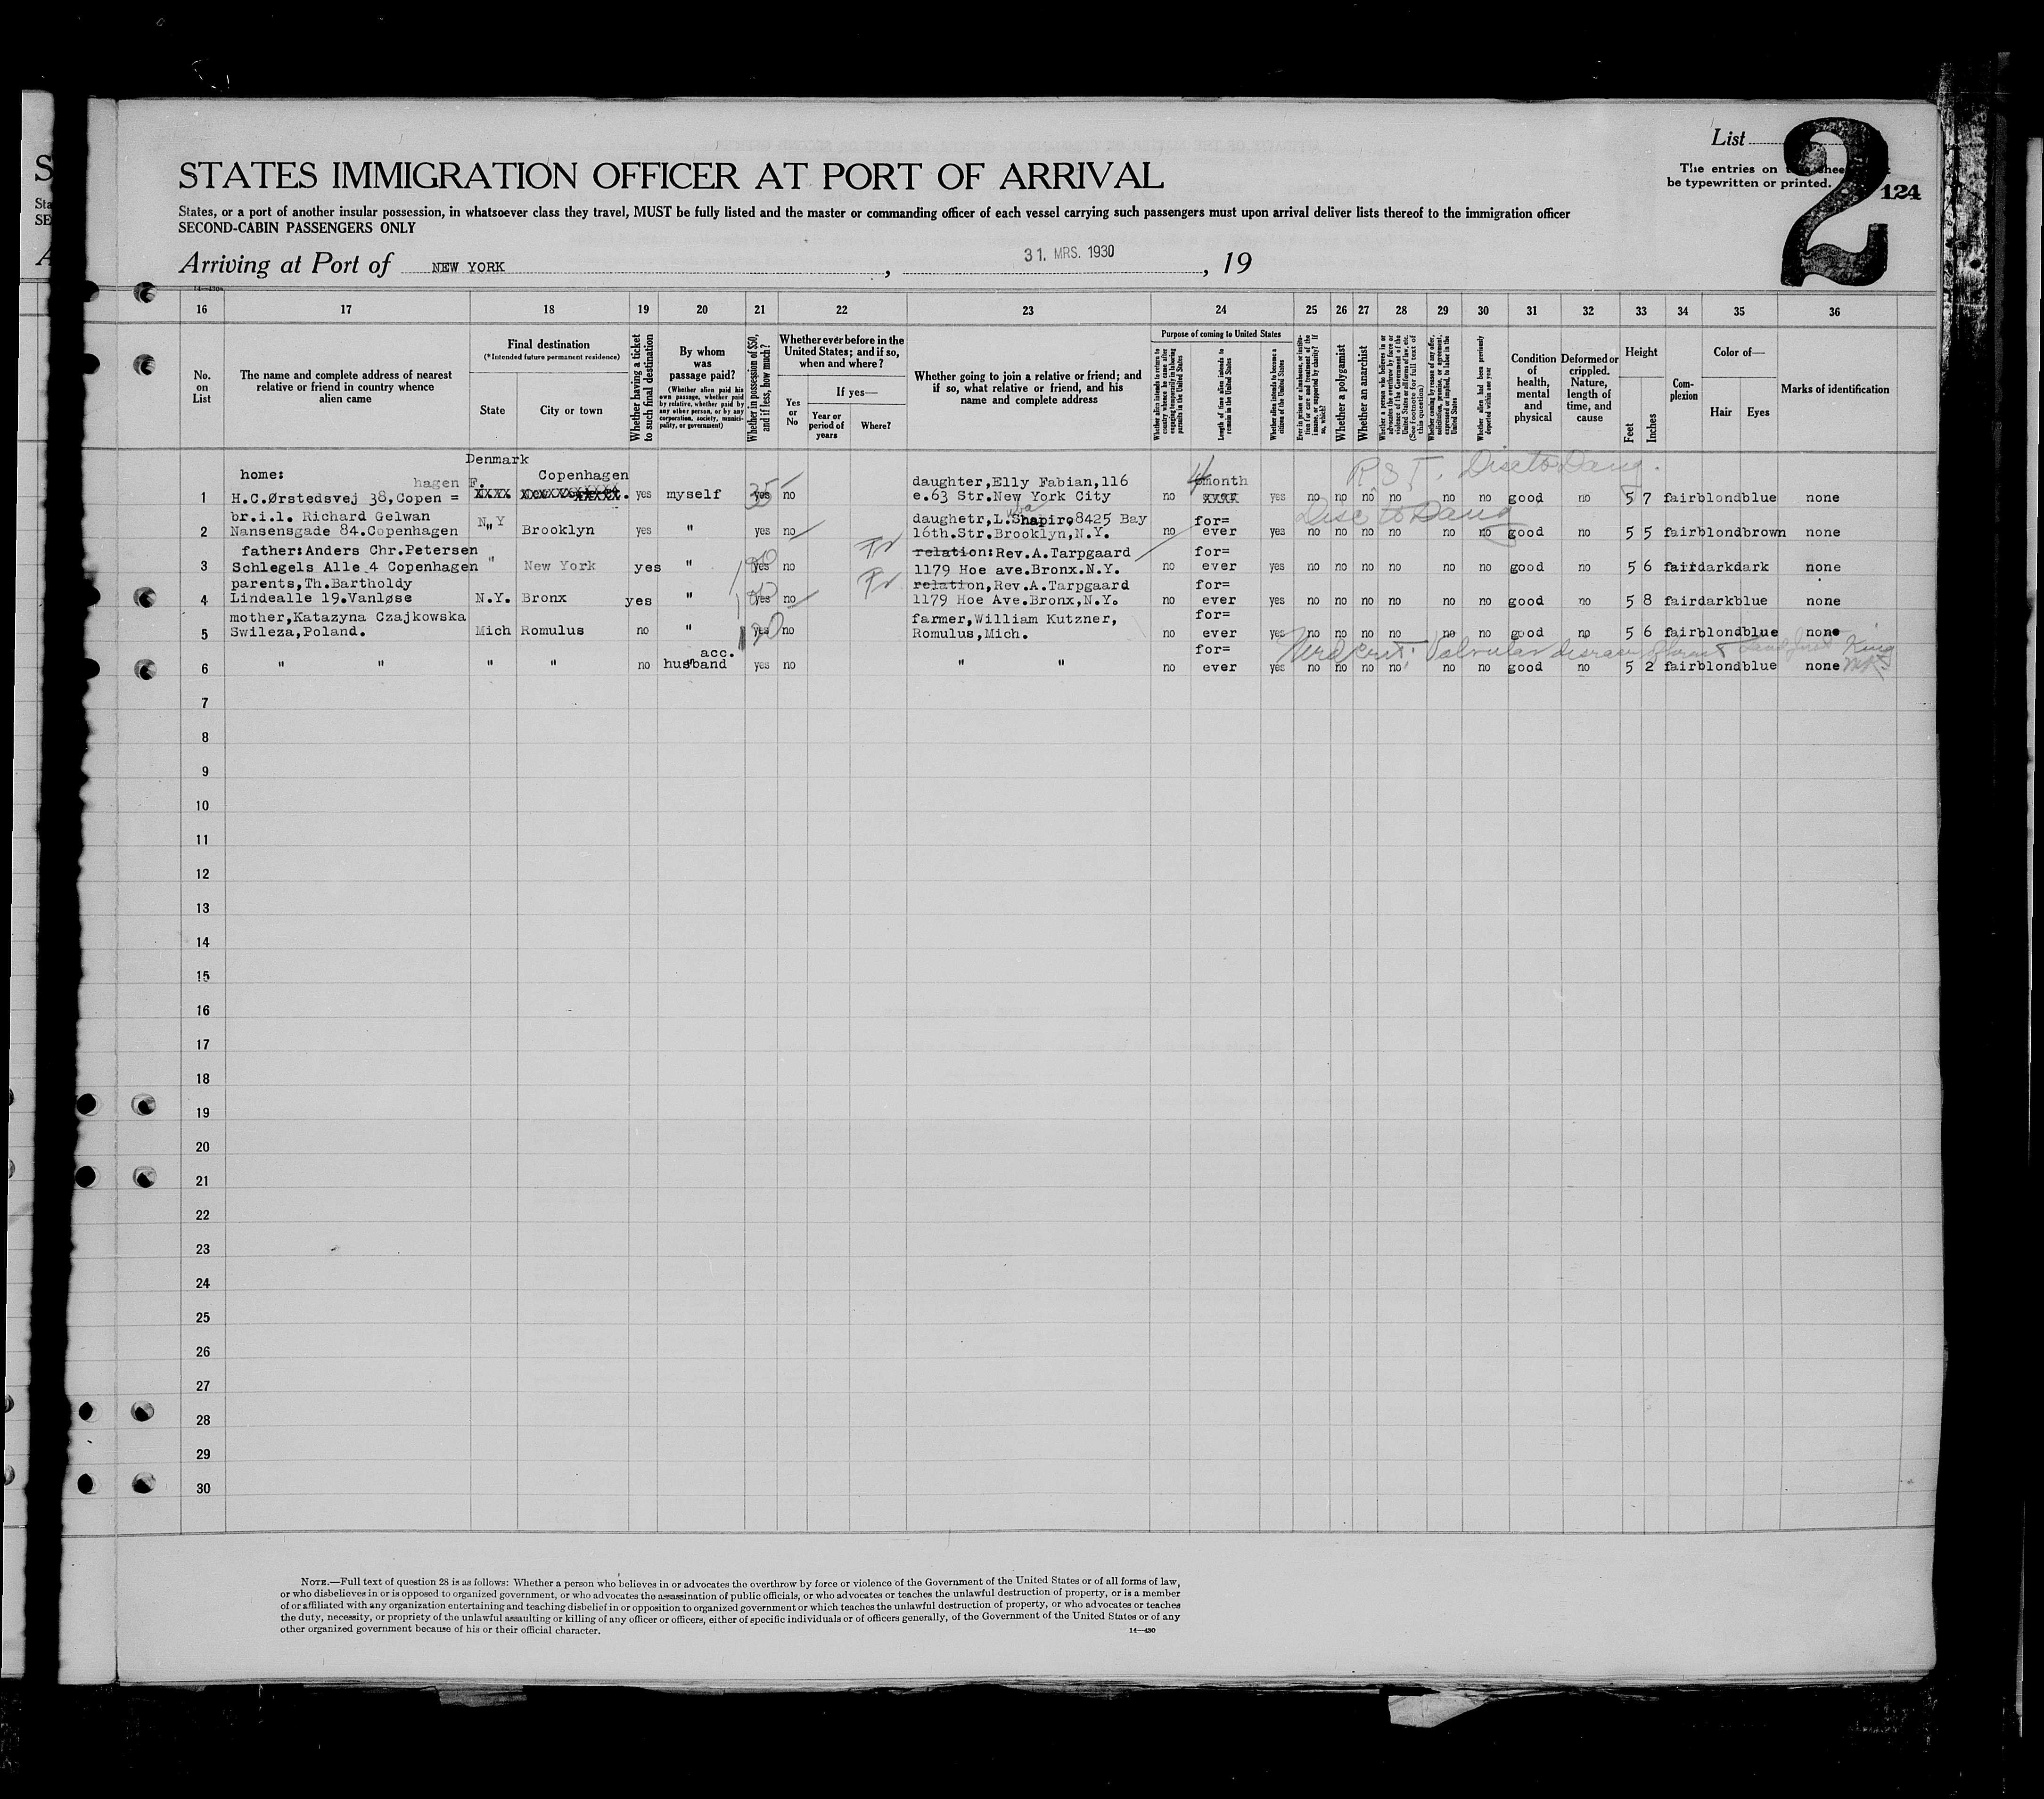 List 2
The entries on this sheet
be typewritten or printed.
124
STATES IMMIGRATION OFFICER AT PORT OF ARRIVAL
States, or a port of another insular possession, in whatsoever class they travel, MUST be fully listed and the master or commanding officer of each vessel carrying such passengers must upon arrival deliver lists thereof to the immigration officer
SECOND-CABIN PASSENGERS ONLY
Arriving at Port of NEW YORK, 31. MRS. 1930, 19
16 17 18 19 20 21 22 23 24 25 26 27 28 29 30 31 32 33 34 35 36
No. on List
The name and complete address of nearest relative or friend in country whence alien came
Final destination
(*Intended future permanent residence)
State
City or town
Whether having a ticket to such final destination
By whom was passage paid?
(Whether alien paid his own passage, whether paid by relative, whether paid by any other person, or by any corporation, society, municipality, or government)
Whether in possession of $50, and if less, how much?
Whether ever before in the United States; and if so, when and where?
Yes or No
If yes—
Year or period of years
Where?
Whether going to join a relative or friend; and if so, what relative or friend, and his name and complete address
Purpose of coming to United States
Whether alien intends to return to country whence he came after engaging temporarily in laboring pursuits in the United States
Length of time alien intends to remain in the United States
Whether alien intends to become a citizen of the United States
Whether a polygamist
Whether an anarchist
Whether alien had been previously deported within one year
Condition of health, mental and physical
Deformed or crippled. Nature, length of time, and cause
Height
Feet
Inches
Complexion
Color of—
Hair
Eyes
Marks of identification
Denmark
home: Copenhagen 35 daughter,Elly Fabian,116 4 month R.S.T. Disc to Daug.
hagen F.
1 H.C.Ørstedsvej 38,Copen = yes myself yes no e.63 Str.New York City no yes no no no no no no good no 5 7 fair blond blue none
br.i.l. Richard Gelwan N.Y daughetr,L.Shapiro,8425 Bay for= Disc to Daug
2 Nansensgade 84.Copenhagen " Brooklyn yes " yes no 16th.Str.Brooklyn,N.Y. no ever yes no no no no no no good no 5 5 fair blond brown none
father:Anders Chr.Petersen relation:Rev.A.Tarpgaard for=
3 Schlegels Alle 4 Copenhagen " New York yes " yes no 1179 Hoe ave.Bronx.N.Y. no ever yes no no no no no no good no 5 6 fair dark dark none
parents,Th.Bartholdy relation,Rev.A.Tarpgaard for=
4 Lindealle 19.Vanløse N.Y. Bronx yes " yes no 1179 Hoe Ave.Bronx,N.Y. no ever yes no no no no no no good no 5 8 fair dark blue none
mother,Katazyna Czajkowska farmer,William Kutzner, for=
5 Swileza,Poland. Mich Romulus no " yes no Romulus,Mich. no ever yes no no no no no no good no 5 6 fair blond blue none
acc. for= Med cert: Valvular disease of heart King
6 " " " " no husband yes no " " no ever yes no no no no no no good no 5 2 fair blond blue none
7
8
9
10
11
12
13
14
15
16
17
18
19
20
21
22
23
24
25
26
27
28
29
30
NOTE.—Full text of question 28 is as follows: Whether a person who believes in or advocates the overthrow by force or violence of the Government of the United States or of all forms of law,
or who disbelieves in or is opposed to organized government, or who advocates the assassination of public officials, or who advocates or teaches the unlawful destruction of property, or is a member
of or affiliated with any organization entertaining and teaching disbelief in or opposition to organized government or which teaches the unlawful destruction of property, or who advocates or teaches
the duty, necessity, or propriety of the unlawful assaulting or killing of any officer or officers, either of specific individuals or of officers generally, of the Government of the United States or of any
other organized government because of his or their official character.
14—430